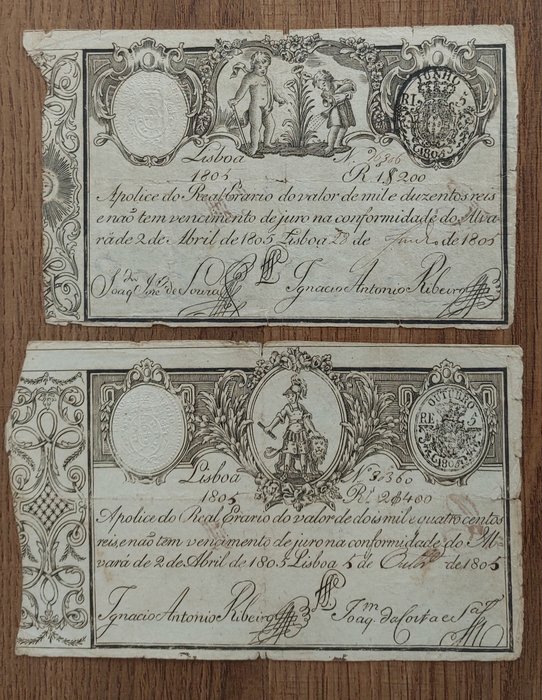 JUNHO
RE 5
1805
Lisboa N.
1805 Rs 1$200
Apolice do Real Erario do valor de mil e duzentos reis
e não tem vencimento de juro na conformidade do Alva
rá de 2 de Abril de 1805 Lisboa 28 de Junho de 1805
Joaq. José de Souza Ignacio Antonio Ribeiro
OUTUBRO
RE 5
1805
Lisboa N.
1805 Rs 2$400
Apolice do Real Erario do valor de dois mil e quatro centos
reis, e não tem vencimento de juro na conformidade do Al
vará de 2 de Abril de 1805 Lisboa 5 de Outbr.o de 1805
Ignacio Antonio Ribeiro Joaq. da Costa e